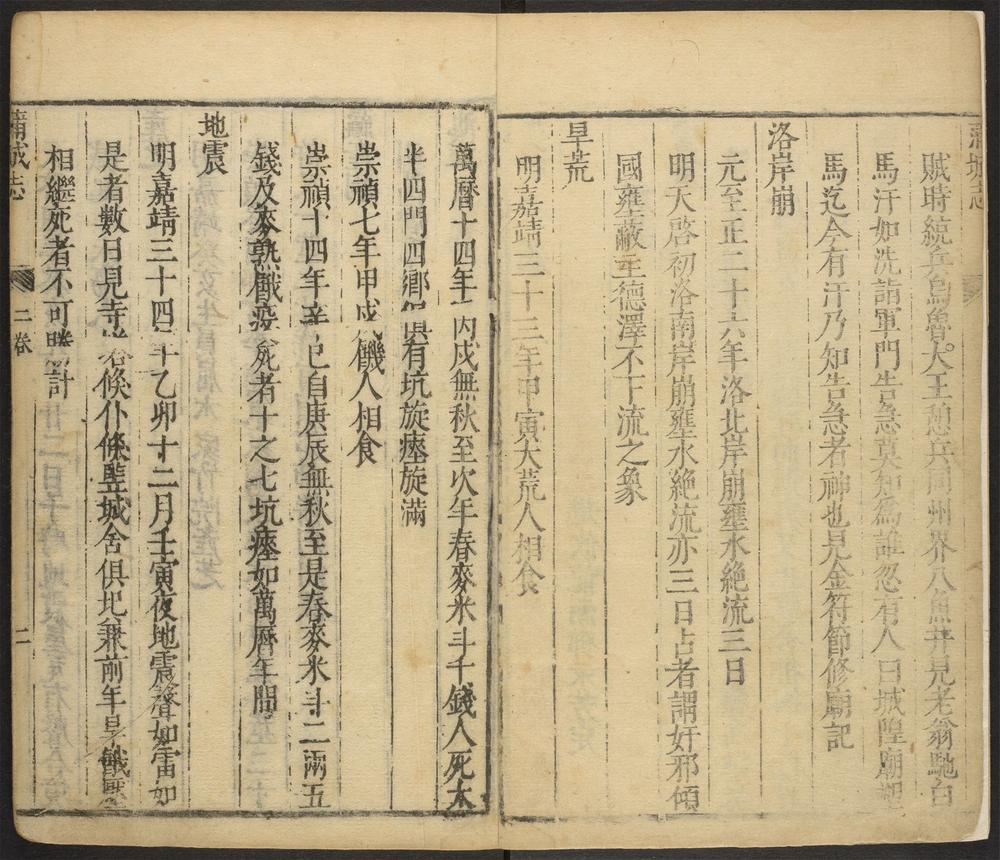 蒲城志
賊時統兵烏魯大王憩兵同州界八魚井見老翁馳白
馬汗如洗詣軍門告急莫知為誰忽有人曰城隍廟塑
馬迄今有汗乃知告急者神也見金符節修廟記
洛岸崩
元至正二十六年洛北岸崩壅水絶流三日
明天啓初洛南岸崩壅水絶流亦三日占者謂奸邪傾
國壅蔽主德澤不下流之象
旱荒
明嘉靖三十三年甲寅大荒人相食
萬曆十四年丙戍無秋至次年春麥米斗千錢人死大
半四門四鄉俱有坑旋瘞旋滿
崇禎七年甲戍饑人相食
崇禎十四年辛巳自庚辰無秋至是春麥米斗二兩五
錢及麥熟饑疫死者十之七坑瘞如萬曆年間
地震
明嘉靖三十四年乙卯十二月壬寅夜地震聲如雷如
是者數日見寺塔倐仆倐竪城舍俱圮兼前年旱饑
相繼死者不可勝計
蒲城志
二卷
二